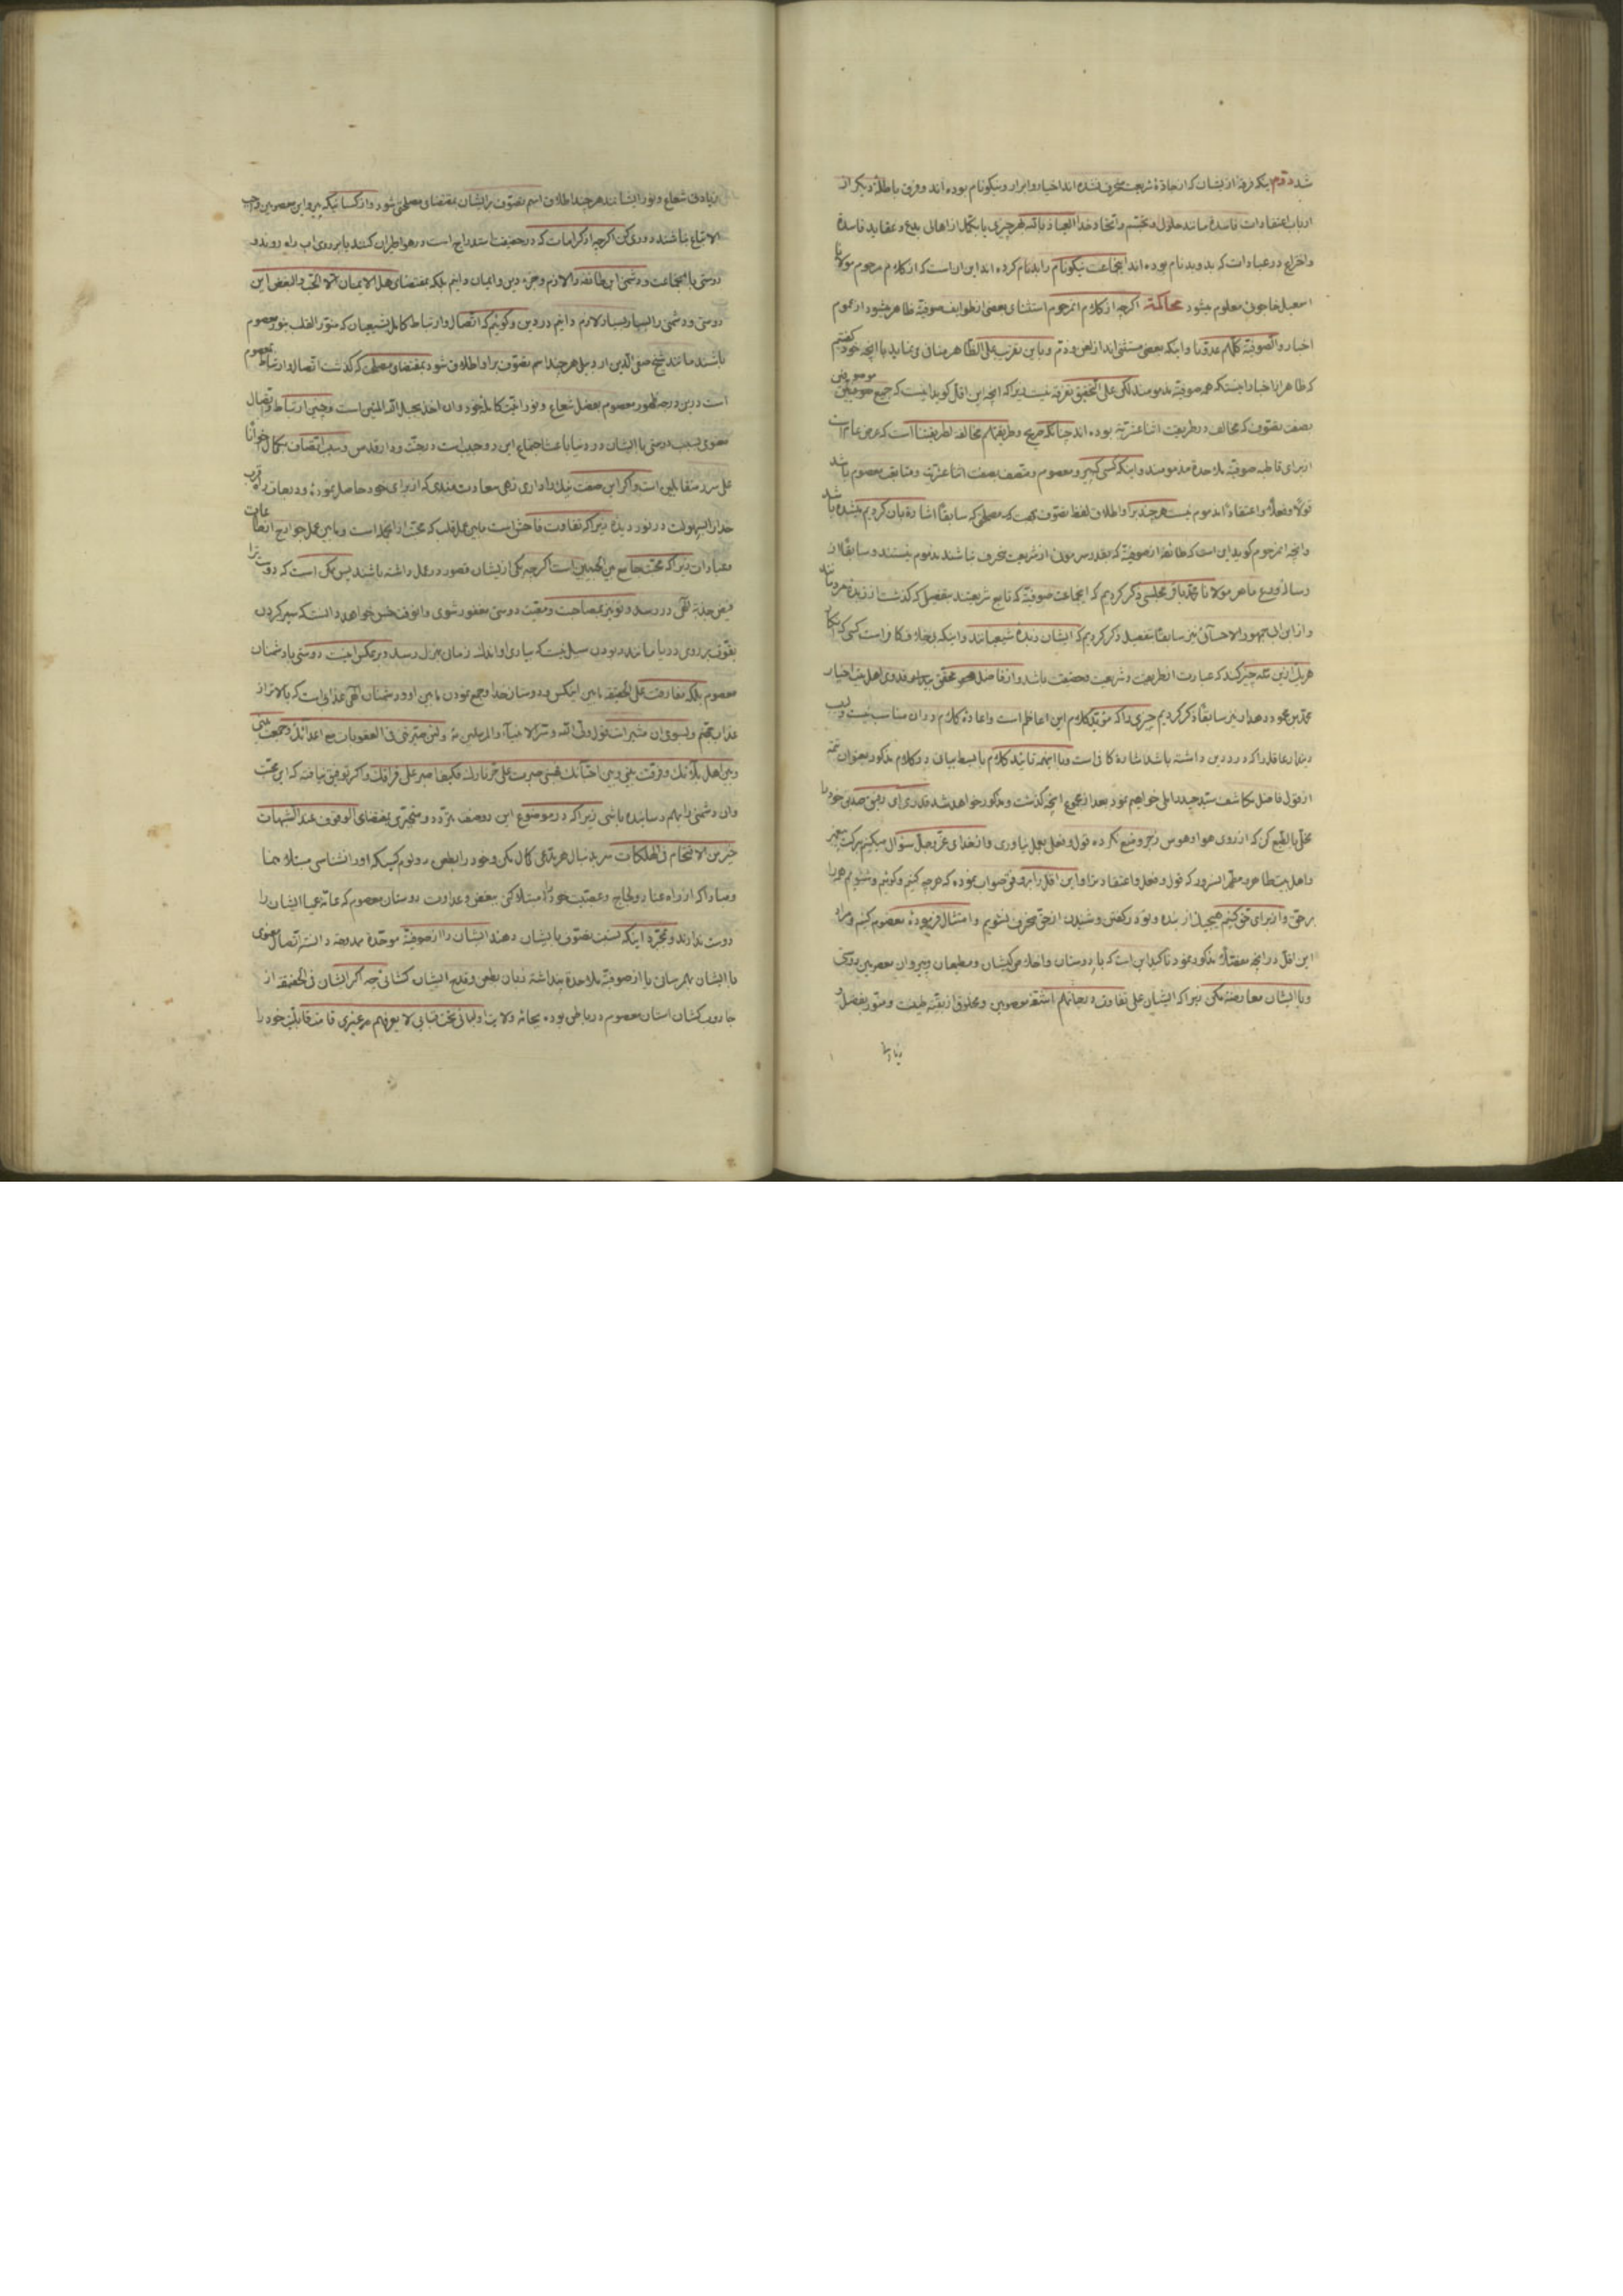 شد دوم اینکه فرقهٔ ازیشان که از جادهٔ شریعت منحرف نشده اند اخیار و ابرار و نیکونام بوده اند و فرق باطلهٔ دیگر از
ارباب اعتقادات فاسدة مانند حلول و تجسم و اتحاد خدا العیاذ بالله هر چیزی یا بتکمل از اهالی بدع و عقاید فاسدة
و اختراع در عبادات که بد و بدنام بوده اند اینجماعت نیکونام را بدنام کرده اند این است که از کلام مرحوم مولانا
اسمعیل خاجوئی معلوم میشود محاکمة اگرچه از کلام آنمرحوم استثنای بعضی از طوایف صوفیّة ظاهر میشود از عموم
اخبار والصوفیّة کلّهم عدوّنا و اینکه بعضی مستثنی اند از لعن و ذمّ و باین تقریب علی الظّاهر منافی می نماید با آنچه خود گفتیم
که ظاهر از اخبار اینستکه همه صوفیّة مذمومند لکن علی التحقیق تفرقه نیست زیرا که آنچه این اقل گوید اینست که جمیع موصوفین
بصفت تصوّف که مخالف در طریقت اثنا عشریّة بوده اند چنانکه صریح و طریقتهم مخالفة لطریقتنا است که
از برای قاطبه صوفیّة ملاحدة مذمومند و اینکه کسی که پیرو معصوم و متصف بصفت اثنا عشریّت و متابعت معصوم باشد
قولاً و فعلاً و اعتقاداً مذموم نیست هر چند بر او اطلاق لفظ تصوّف کنند که بمصلحتی که سابقاً اشارة بآن کردیم میشده باشد
و آنچه آنمرحوم گوید این است که طائفهٔ از صوفیّة که بقدر سر موئی از شریعت منحرف نباشند مذموم نیستند و سابقاً از
رسالهٔ مولانا محمّد باقر مجلسی ذکر کردیم که اینجماعت صوفیّة که تابع شریعتند بتفصیل که گذشت از زبدهٔ مردمانند
و از ابن ابی جمهور الاحسائی نیز سابقاً بتفصیل ذکر کردیم که ایشان زبدهٔ شیعیانند و اینکه بخلاف کافر است کسی که انکار
هر یک ازین سه چیز کند که عبارت از طریقت و شریعت و حقیقت باشد و از فاضل محقق
محمّد بن محمود دهدار نیز سابقاً ذکر کردیم چیزی را که مؤیّد کلام این اعاظم است و اعادهٔ کلام در آن مناسب نیست
دیندار عاقل را که درد دین داشته باشد اشاره کافی است و با اینهمه تائید کلام با بسط بیان در کلام مذکور بعنوان تتمّه
از قول فاضل مکاشف سیّد حیدر آملی خواهیم نمود بعد از مجموع آنچه گذشت و مذکور خواهد شد قدری ای رفیق صدیق خود را
مخلّی بالطبع کن که از روی هوا و هوس زجر و منع نکرده قول و فعل بعمل نیاوری و از خدای عزّ و جلّ سؤال میکنیم ببرکت پیغمبر
و اهل بیت طاهرهٔ مطهّر آنسرور که قول و فعل و اعتقاد ترا و این اقل را بر وفق صواب نموده که هر چه کنیم و گوئیم و شنویم همه را
بر حقّ و از برای حق کنیم هیچیک از بنده و تو در گفتن و شنیدن از حق منحرف نشویم و امتثال فرمودهٔ معصوم کنیم و مراد
این اقل در آنچه مفصّلاً مذکور نمود تاکید این است که با دوستان و اخلاص کیشان و مطیعان و پیروان معصومین دوستی
و با ایشان معارضه مکن زیرا که ایشان علی تفاوت درجاتهم اشعّهٔ معصومین و مخلوق از بقیّهٔ طینت و منوّر بفضل و
زیادة
زیادتی شعاع و نور ایشانند هر چند اطلاق اسم تصوّف بر ایشان بمقتضای مصلحتی شود و از کسانیکه پیرو این معصومین واجب
الاتباع نباشند دوری کن اگر چه از کرامات که در حقیقت استدراج است در هوا طیران کنند یا بر روی آب راه روند و
دوستی با اینجماعت و دشمنی این طائفه را لازم و جزء دین و ایمان دانیم بلکه بمقتضای هل الایمان الّا الحبّ و البغض این
دوستی و دشمنی را بسیار بسیار لازم دانیم در دین و گوئیم که اتّصال و ارتباط کامل شیعیان که منوّر القلب بنور معصوم
باشند مانند شیخ صفی الدّین اردبیلی هر چند اسم تصوّف بر او اطلاق شود بمقتضای مصلحتی که گذشت اتّصال و ارتباط بمعصوم
است درین درجه ظهور معصوم بفضل شعاع و نور اینست و آن اخذ بحبل الله المتین است و چنین ارتباط و اتصال
معنوی بسبب دوستی با ایشان در دنیا باعث اجتماع این دو حبیب است در جنّت و دار قدس و سبب اتّصاف بکمال اخواناً
علی سرر متقابلین است و اگر این صفت نیک را داری زهی سعادت مندی که از برای خود حاصل نمودهٔ و درجات راه قرب
خدا را بسهولت در نور دیدهٔ زیرا که تفاوت فاحش است مابین عمل قلب که محبّت از آنجمله است و مابین عمل جوارح از طاعات
و عبادات زیرا که محبّت جامع بین المحبّین است اگر چه یکی ازیشان قصور در عمل داشته باشند پس ممکن است که دوست را
فیض جذبهٔ الهی در رسد و تو نیز بمصاحبت و معیّت دوستی مغفور شوی و
بقوّت بر روی دریا مانند در بودن سیل نیست که بیاری او اندک زمان بمنزل رسد و بر عکس اینست دوستی با دشمنان
معصوم بلکه مفارقت علی الحقیقه مابین اینکس و دوستان خدا و جمع نمودن مابین او و دشمنان الهی عذابی است که بالاتر از
عذاب جهنّم و بسوی آن مشیر است قول ولیّ الله و سرّ الانبیاء و المرسلین و لئن صیّرتنی فی العقوبات مع اعدائک و جمعت بینی
و بین اهل بلائک و فرّقت بینی و بین احبّائک فهبنی صبرت علی حرّ نارک فکیف اصبر علی فراقک و اگر توفیق نیافته که این محبّت
و آن دشمنی را بهم رسانیده باشی زیرا که در موضوع این دو صفت متردّد و متحیّری بمقتضای الوقوف عند الشبهات
خیر من الاقتحام فی الهلکات سر بدنبال هر مدّعی کمال مکن و خود را بطعن و لوم کسیکه او را نشناسی مبتلا منما
و مبادا که از راه عناد و لجاج و عصبیّت خود را مبتلا کنی ببغض و عداوت دوستان معصوم که
دوست ندارند و بمجرّد اینکه نسبت تصوّف بایشان دهند ایشان را از صوفیّة موحّدة دانسته اتّصال معنوی
با ایشان بهم رسانی یا از صوفیّهٔ ملاحدة پنداشته زبان بطعن و قدح ایشان گشائی چه اگر ایشان فی الحقیقة از
جاروب کشان آستان معصوم در باطن بوده اولیائی تحت قبابی لا یعرفهم غیری قامت قابلیّت خود را